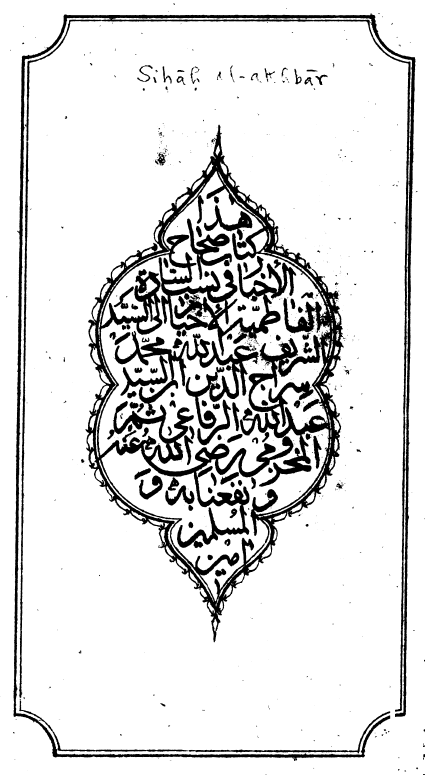 Ṣiḥāḥ al-akhbār
هذا
كتاب صحاح
الأخبار في نسب السادة
الفاطمية الأخيار الى السيد
الشريف عبد الله محمد
سراج الدين ابن السيد
عبد الله الرفاعي ثم
المخزومي رضي الله عنه
ونفعنا به و
المسلمين
امين